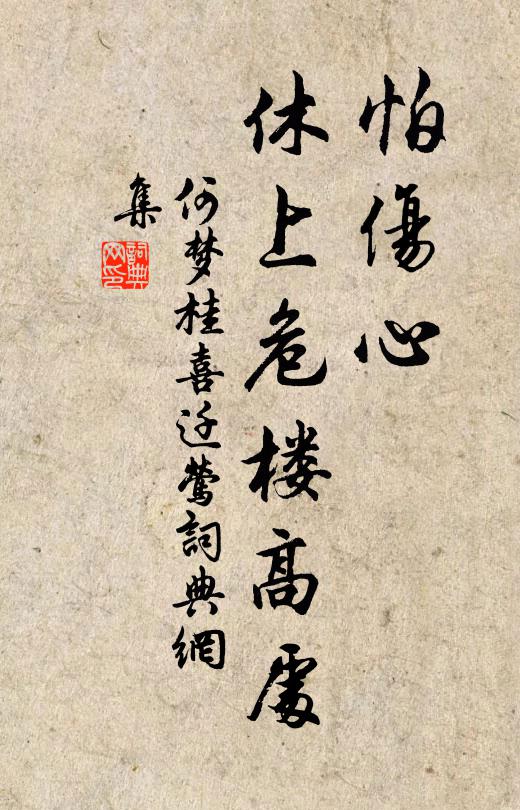 怕傷心
休上危楼高處
何梦桂喜迁莺詞典網
集
詞典网印